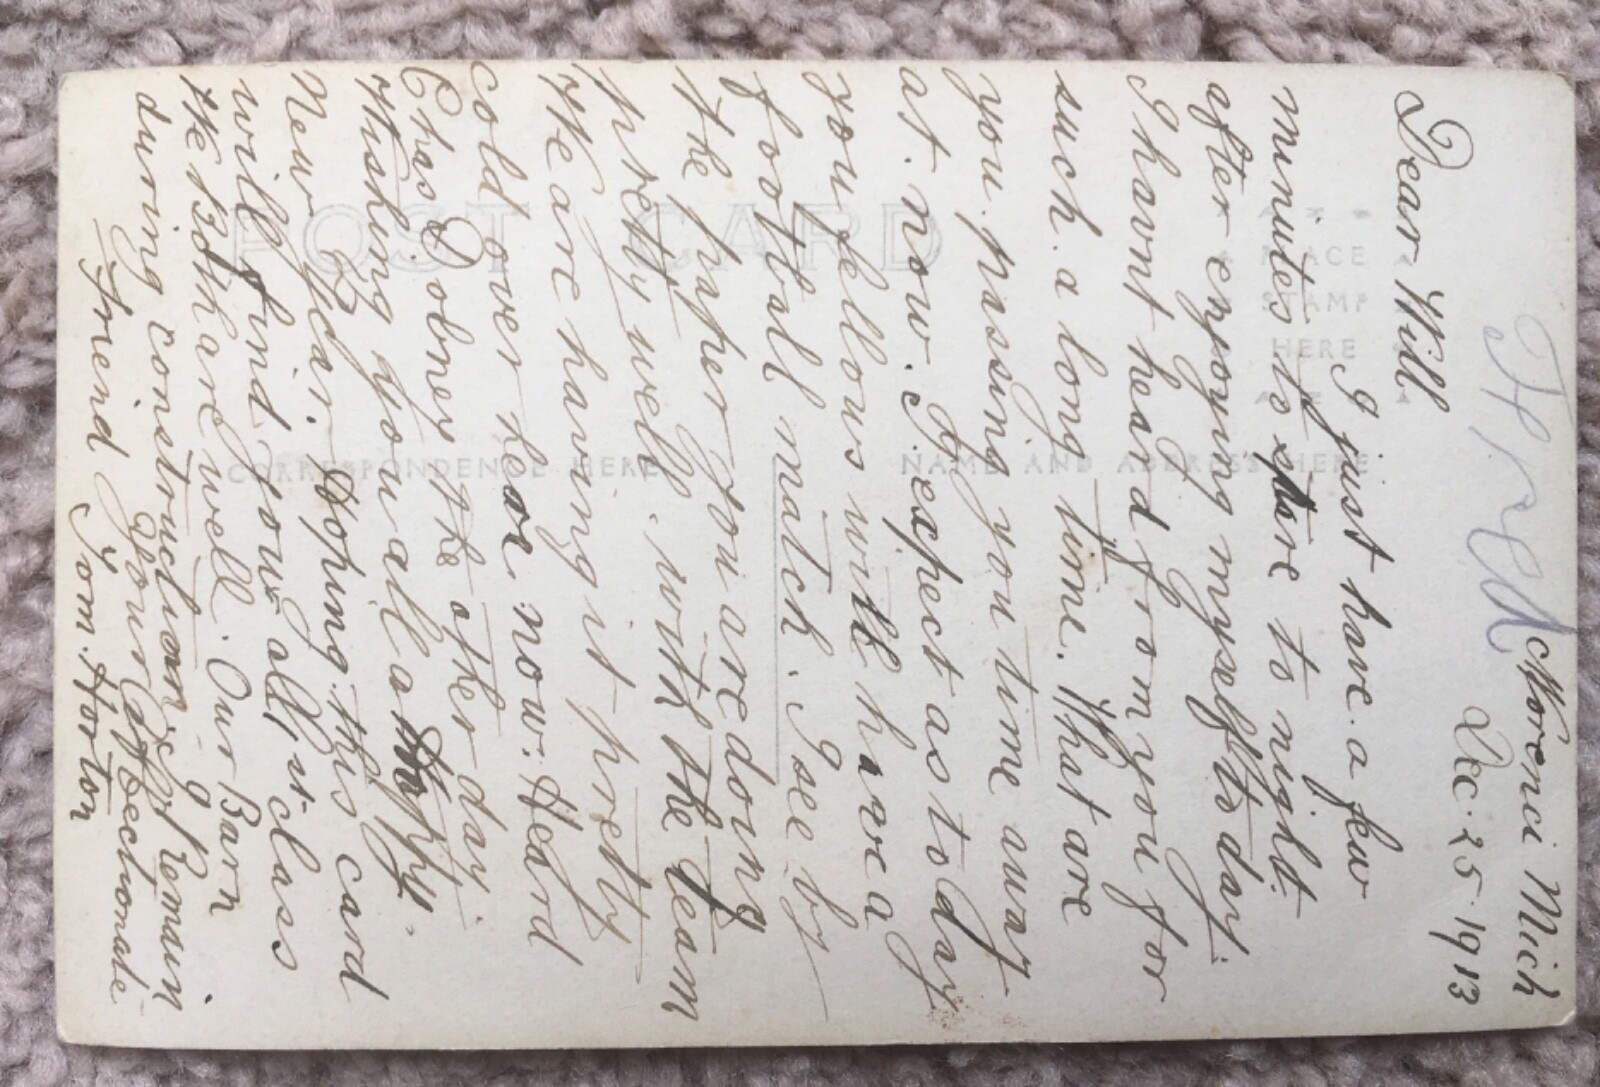 Fred
Morenci Mich
Dec. 25-1913
Dear Will
I just have a few
minutes to spare to night
after enjoying myself to day.
I havnt heard from you for
such a long time. What are
you passing you time away
at. now. I expect as to day
you fellows will have a
football match. I see by
the paper you are doing
pretty well. with the team
We are having it pretty
cold over hear now. Heard
Chas Dobner the other day.
Wishing you all a Happy.
New Year. Hoping this card
will find you all, 1st class
We Both are well. Our Barn
during construction. I Remain
Your affectionate
Freind Tom. Horton
POST CARD
CORRESPONDENCE HERE
NAME AND ADDRESS HERE
PLACE
STAMP
HERE